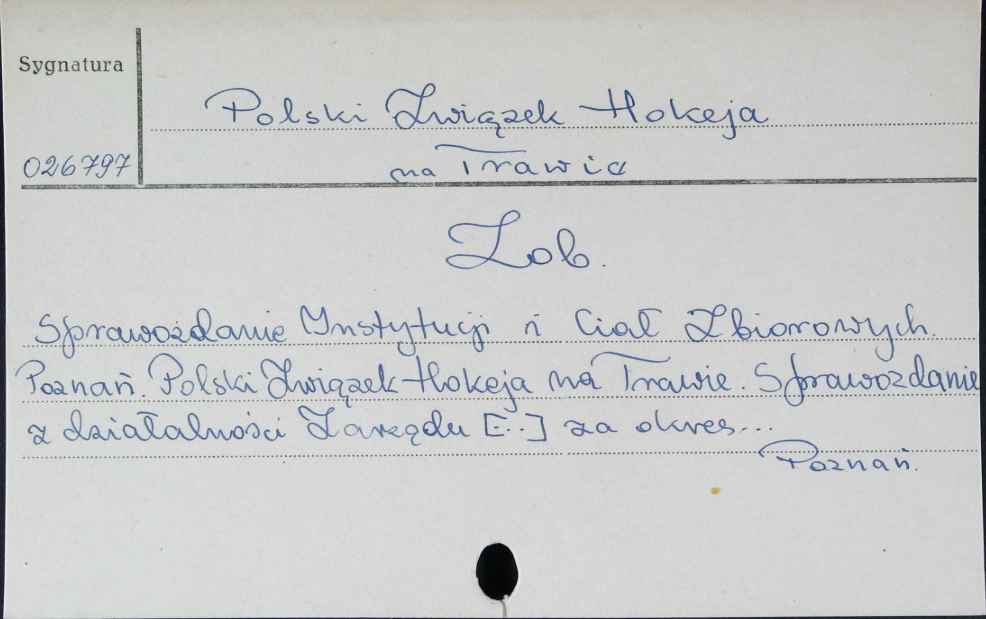 Sygnatura
Polski Związek Hokeja
026797
na Trawie
Zob.
Sprawozdanie Instytucji i Ciał Zbiorowych.
Poznań. Polski Związek Hokeja na Trawie. Sprawozdanie
z działalności Zarządu [...] za okres...
Poznań.